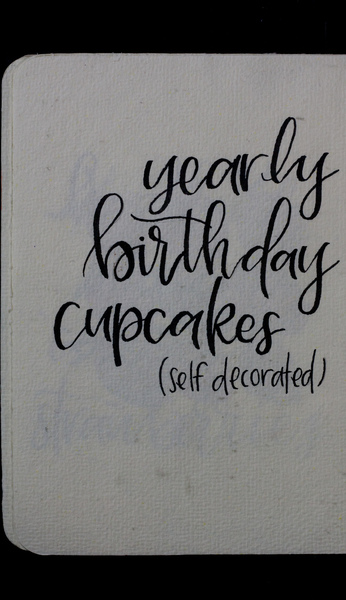 yearly
birthday
cupcakes
(self decorated)